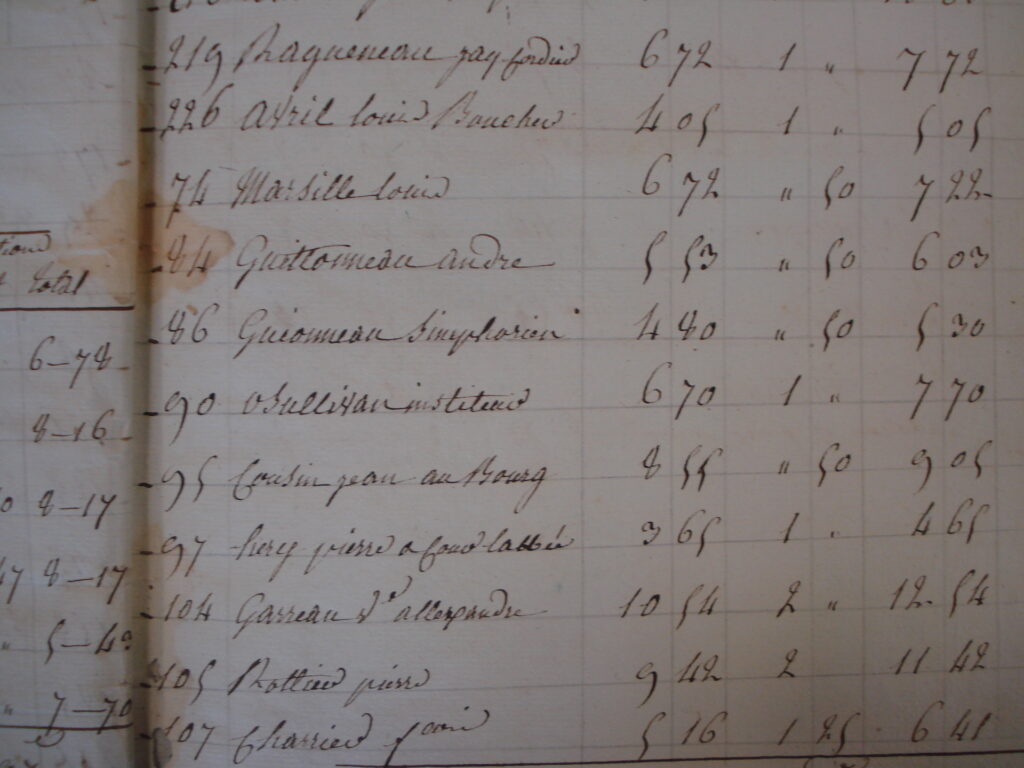 219 Raqueneau jaq cordier 6 72 1 " 7 72
226 Avril louis Boucher 4 05 1 " 5 05
74 Marsille louis 6 72 " 50 7 22
84 Guittonneau andre 5 53 " 50 6 03
86 Guionneau Simphorien 4 80 " 50 5 30
90 oSullivan instituteur 6 70 1 " 7 70
95 Cousin jean au Bourg 8 55 " 50 9 05
97 pierre a 3 65 1 " 4 65
104 Garreau Ve allexandre 10 54 2 " 12 54
105 Rottier pierre 9 42 2 11 42
107 Charrier 5 16 1 25 6 41
total
6-78
8-16
8-17
8-17
5-40
" 7-70